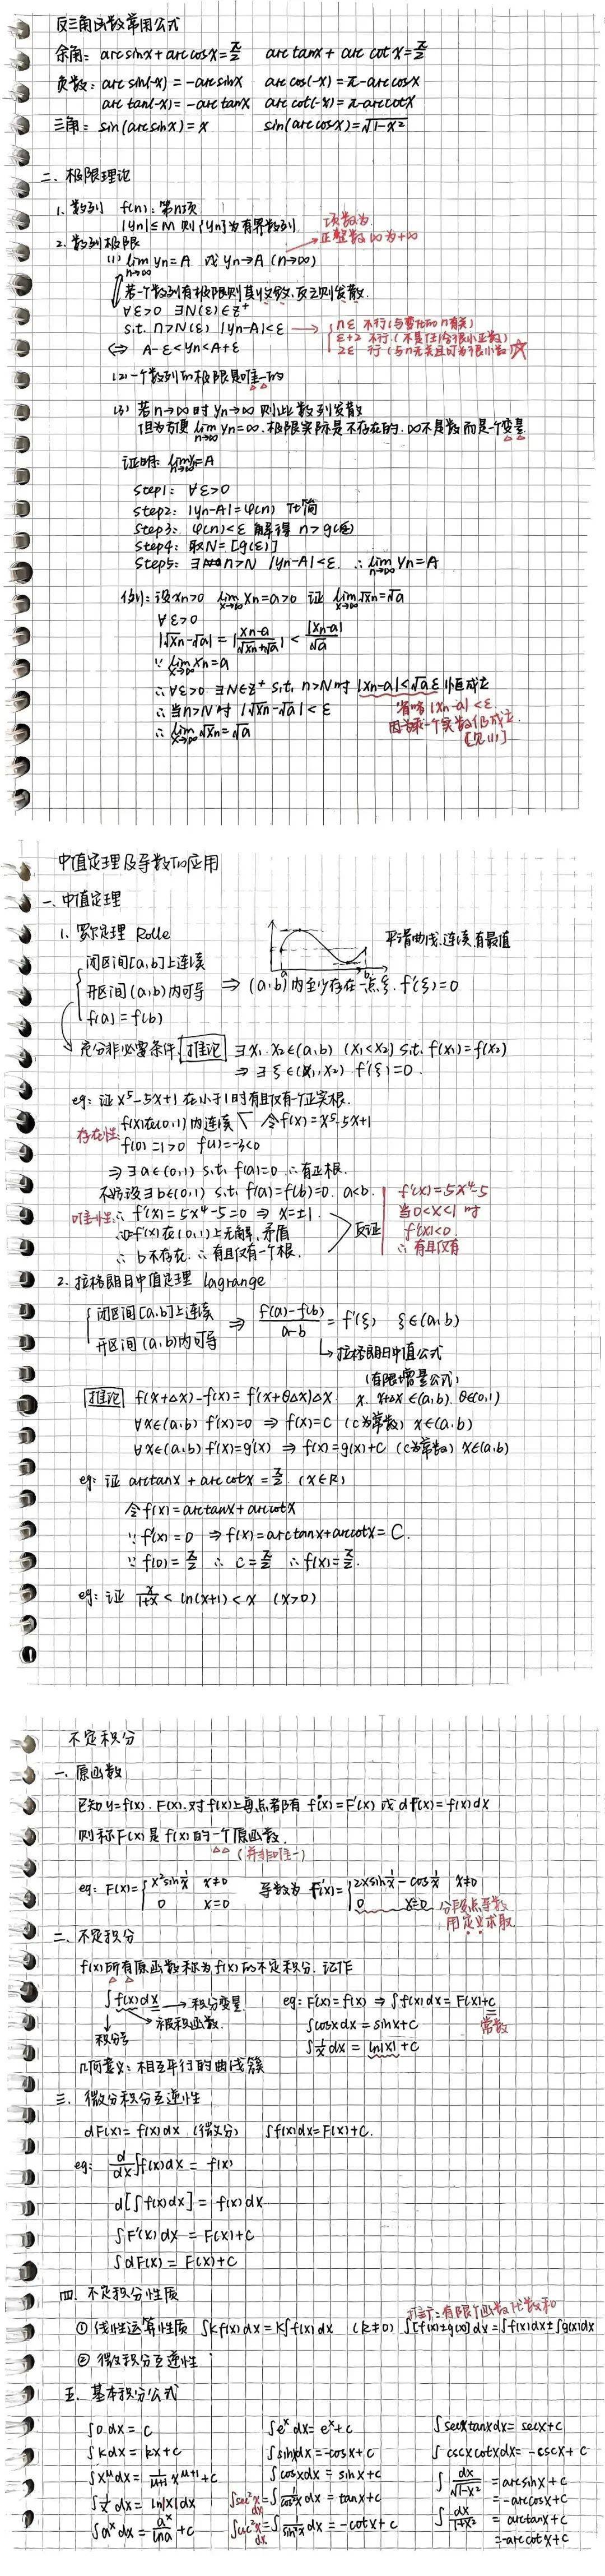 反三角函数常用公式
余角: arcsinx+arccosx=π/2 arctanx+arccotx=π/2
负数: arcsin(-x)=-arcsinx arccos(-x)=π-arccosx
arctan(-x)=-arctanx arccot(-x)=π-arccotx
三角: sin(arcsinx)=x sin(arccosx)=√(1-x²)
二. 极限理论
1. 数列 f(n): 第n项
|yn|≤M 则{yn}为有界数列
2. 数列极限
项数为
正整数 ∞为+∞
(1) lim n→∞ yn=A 或 yn→A (n→∞)
若一个数列有极限则其收敛,反之则发散.
∀ε>0 ∃N(ε)∈Z⁺
s.t. n>N(ε) |yn-A|<ε → nε 不行(与变化的n有关)
ε+2 不行.(不是任给很小正数)
⇔ A-ε<yn<A+ε 2ε 行 (与n无关且可为很小数)☆
(2) 一个数列的极限是唯一的
(3) 若n→∞时 yn→∞ 则此数列发散
但为方便 lim n→∞ yn=∞. 极限实际是不存在的. ∞不是数而是一个变量
证明: lim n→∞ yn=A
Step1: ∀ε>0
Step2: |yn-A|=φ(n) 化简
Step3: φ(n)<ε 解得 n>g(ε)
Step4: 取N=[g(ε)]
Step5: n>N |yn-A|<ε. ∴ lim n→∞ yn=A
例: 设xn>0 lim x→∞ xn=a>0 证 lim x→∞ √xn=√a
∀ε>0
|√xn-√a|=|(xn-a)/(√xn+√a)|<|xn-a|/√a
∵ lim x→∞ xn=a
∴∀ε>0. ∃N∈Z⁺ s.t. n>N时 |xn-a|<√a ε 恒成立
∴当n>N时 |√xn-√a|<ε
∴ lim x→∞ √xn=√a
省略|xn-a|<ε
因为乘一个实数仍成立.
[见(1)]
中值定理及导数的应用
一. 中值定理
1. 罗尔定理 Rolle
平滑曲线,连续,有最值
闭区间[a,b]上连续
开区间(a,b)内可导 ⇒ (a,b)内至少存在一点ξ. f'(ξ)=0
f(a)=f(b)
充分非必要条件. 推论 ∃x₁.x₂∈(a,b) (x₁<x₂) s.t. f(x₁)=f(x₂)
⇒ ∃ξ∈(x₁,x₂) f'(ξ)=0.
eg: 证x⁵-5x+1在小于1时有且仅有一个正实根.
存在性: f(x)在(0,1)内连续 令f(x)=x⁵-5x+1
f(0)=1>0 f(1)=-3<0
⇒ ∃a∈(0,1) s.t. f(a)=0 ∴有正根.
不妨设∃b∈(0,1) s.t. f(a)=f(b)=0. a<b.
唯一性: ∴f'(x)=5x⁴-5=0 ⇒ x=±1.
f'(x)在(0,1)上无解,矛盾 反证
∴ b不存在 ∴有且仅有一个根.
f'(x)=5x⁴-5
当0<x<1时
f'(x)<0
∴有且仅有
2. 拉格朗日中值定理 lagrange
闭区间[a,b]上连续 ⇒ (f(a)-f(b))/(a-b)=f'(ξ) ξ∈(a,b)
开区间(a,b)内可导
→拉格朗日中值公式
(有限增量公式)
推论 f(x+Δx)-f(x)=f'(x+θΔx)Δx. x. x+Δx∈(a,b). θ∈(0,1)
∀x∈(a,b) f'(x)=0 ⇒ f(x)=C (C为常数) x∈(a,b)
∀x∈(a,b) f'(x)=g'(x) ⇒ f(x)=g(x)+C (C为常数) x∈(a,b)
eg: 证 arctanx+arccotx=π/2. (x∈R)
令f(x)=arctanx+arccotx
∵f'(x)=0 ⇒f(x)=arctanx+arccotx=C.
∵f(0)=π/2 ∴C=π/2 ∴f(x)=π/2.
eg: 证 x/(1+x)<ln(x+1)<x (x>0)
不定积分
一. 原函数
已知y=f(x). F(x).对f(x)上每点都有f(x)=F'(x)或dF(x)=f(x)dx
则称F(x)是f(x)的一个原函数.
(并非唯一)
eg: F(x)={x²sin1/x x≠0 导数为 F'(x)={2xsin1/x-cos1/x x≠0
0 x=0 0 x=0 分段点导数
用定义求取
二. 不定积分
f(x)所有原函数称为f(x)的不定积分. 记作
∫f(x)dx → 积分变量 eg: F'(x)=f(x) ⇒∫f(x)dx=F(x)+C
被积函数. ∫cosxdx=sinx+C 常数
积分号 ∫1/x dx=ln|x|+C
几何意义: 相互平行的曲线簇
三. 微分积分互逆性
dF(x)=f(x)dx (微分) ∫f(x)dx=F(x)+C.
eg: d/dx∫f(x)dx=f(x)
d[∫f(x)dx]=f(x)dx
∫F'(x)dx=F(x)+C
∫dF(x)=F(x)+C
四. 不定积分性质
推广: 有限个函数代数和
① 线性运算性质 ∫kf(x)dx=k∫f(x)dx (k≠0) ∫[f(x)±g(x)]dx=∫f(x)dx±∫g(x)dx
② 微分积分互逆性
五. 基本积分公式
∫0dx=C ∫eˣdx=eˣ+C ∫secxtanxdx=secx+C
∫kdx=kx+C ∫sinxdx=-cosx+C ∫cscxcotxdx=-cscx+C
∫x^μdx=1/(μ+1) x^(μ+1)+C ∫cosxdx=sinx+C ∫dx/√(1-x²)=arcsinx+C
=-arccosx+C
∫1/x dx=ln|x|dx ∫sec²xdx=∫1/cos²x dx=tanx+C
∫aˣdx=aˣ/lna+C ∫csc²xdx=∫1/sin²x dx=-cotx+C ∫dx/(1+x²)=arctanx+C
=-arccotx+C